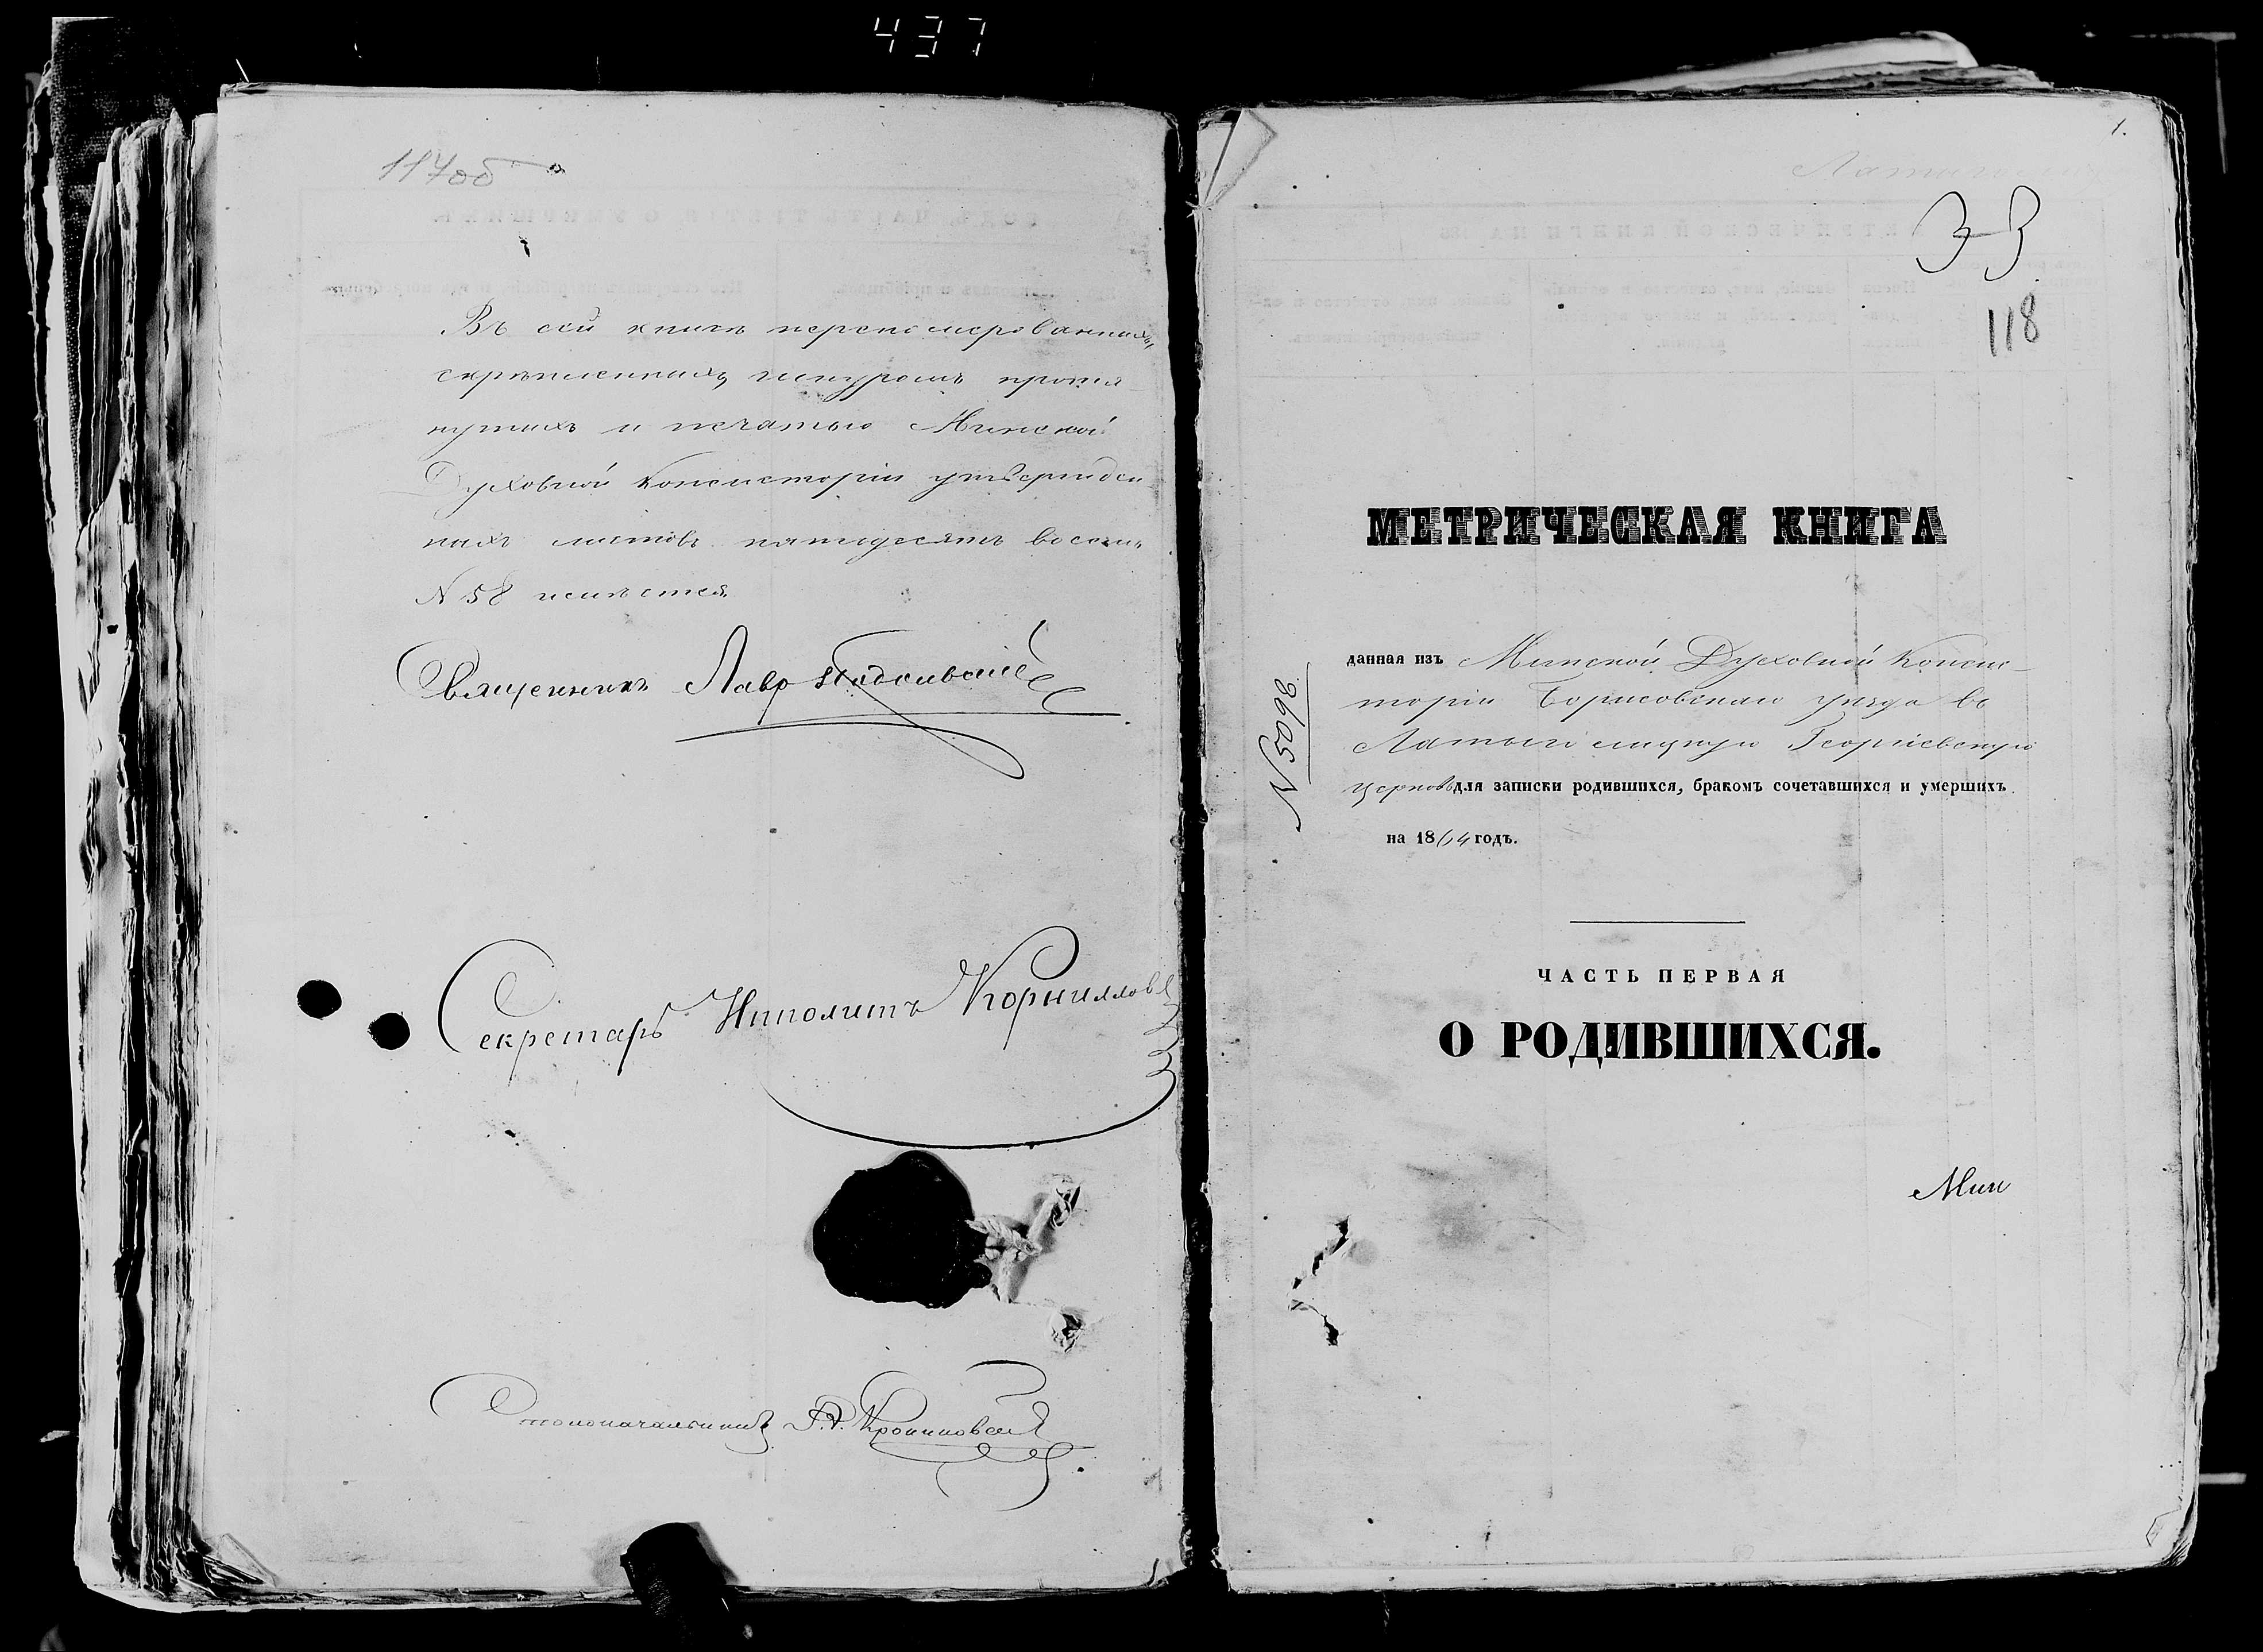 437
117об
Въ сей книгѣ перенумерованныхъ,
скрѣпленныхъ шнуромъ протя-
нутыхъ и печатью Минской
Духовной Консисторіи утвержден-
ныхъ листовъ пятьдесятъ восемь
N 58 имѣется
Священникъ Лавр
Секретарь Иполитъ Корниловъ
Столоначальникъ
1.
33
118
МЕТРИЧЕСКАЯ КНИГА
данная изъ Минской Духовной Консис-
торіи Борисовскаго уѣзда въ
Латыголицкую Георгіевскую
церковь для записки родившихся, бракомъ сочетавшихся и умершихъ
на 1864 годъ.
N 5098
ЧАСТЬ ПЕРВАЯ
О РОДИВШИХСЯ.
Мин